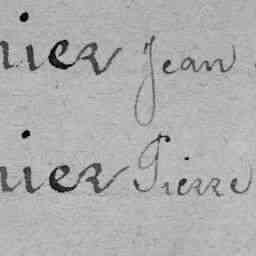 nier Jean
nier Pierre